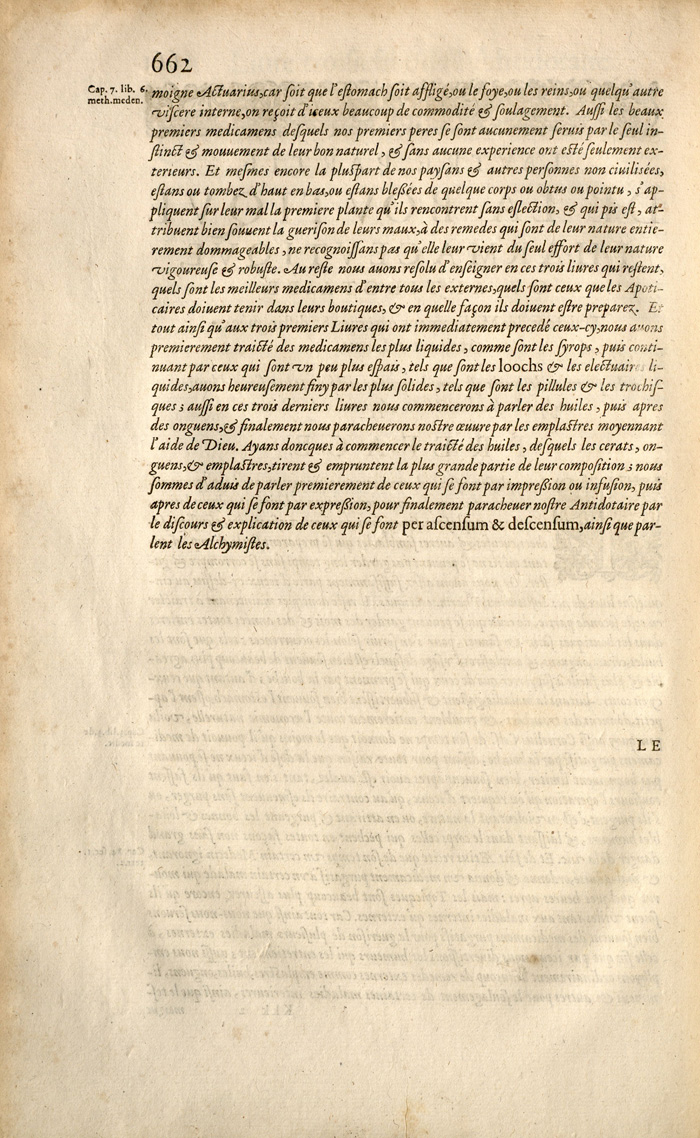 662
Cap. 7. lib. 6.
meth. meden.
moigne Actuarius, car ſoit que l'eſtomach ſoit affligé, ou le foye, ou les reins, ou quelqu'autre
viſcere interne, on reçoit d'iceux beaucoup de commodité & ſoulagement. Auſſi les beaux
premiers medicamens deſquels nos premiers peres ſe ſont aucunement ſeruis par le ſeul in-
ſtinct & mouuement de leur bon naturel, & ſans aucune experience ont eſté ſeulement ex-
terieurs. Et meſmes encore la pluſpart de nos payſans & autres perſonnes non ciuiliſées,
eſtans ou tombez d'haut en bas, ou eſtans bleſſées de quelque corps ou obtus ou pointu, s'ap-
pliquent ſur leur mal la premiere plante qu'ils rencontrent ſans eſlection, & qui pis eſt, at-
tribuent bien ſouuent la gueriſon de leurs maux, à des remedes qui ſont de leur nature entie-
rement dommageables, ne recognoiſſans pas qu'elle leur vient du ſeul effort de leur nature
vigoureuſe & robuſte. Au reſte nous auons reſolu d'enſeigner en ces trois liures qui reſtent,
quels ſont les meilleurs medicamens d'entre tous les externes, quels ſont ceux que les Apoti-
caires doiuent tenir dans leurs boutiques, & en quelle façon ils doiuent eſtre preparez. Et
tout ainſi qu'aux trois premiers Liures qui ont immediatement precedé ceux-cy, nous auons
premierement traicté des medicamens les plus liquides, comme ſont les ſyrops, puis conti-
nuant par ceux qui ſont vn peu plus eſpais, tels que ſont les loochs & les electuaires li-
quides, auons heureuſement finy par les plus ſolides, tels que ſont les pillules & les trochiſ-
ques; auſſi en ces trois derniers liures nous commencerons à parler des huiles, puis apres
des onguens, & finalement nous paracheuerons noſtre œuure par les emplaſtres moyennant
l'aide de Dieu. Ayans doncques à commencer le traicté des huiles, deſquels les cerats, on-
guens, & emplaſtres, tirent & empruntent la plus grande partie de leur compoſition; nous
ſommes d'aduis de parler premierement de ceux qui ſe font par impreſſion ou infuſion, puis
apres de ceux qui ſe font par expreſſion, pour finalement paracheuer noſtre Antidotaire par
le diſcours & explication de ceux qui ſe font per aſcenſum & deſcenſum, ainſi que par-
lent les Alchymiſtes.
LE